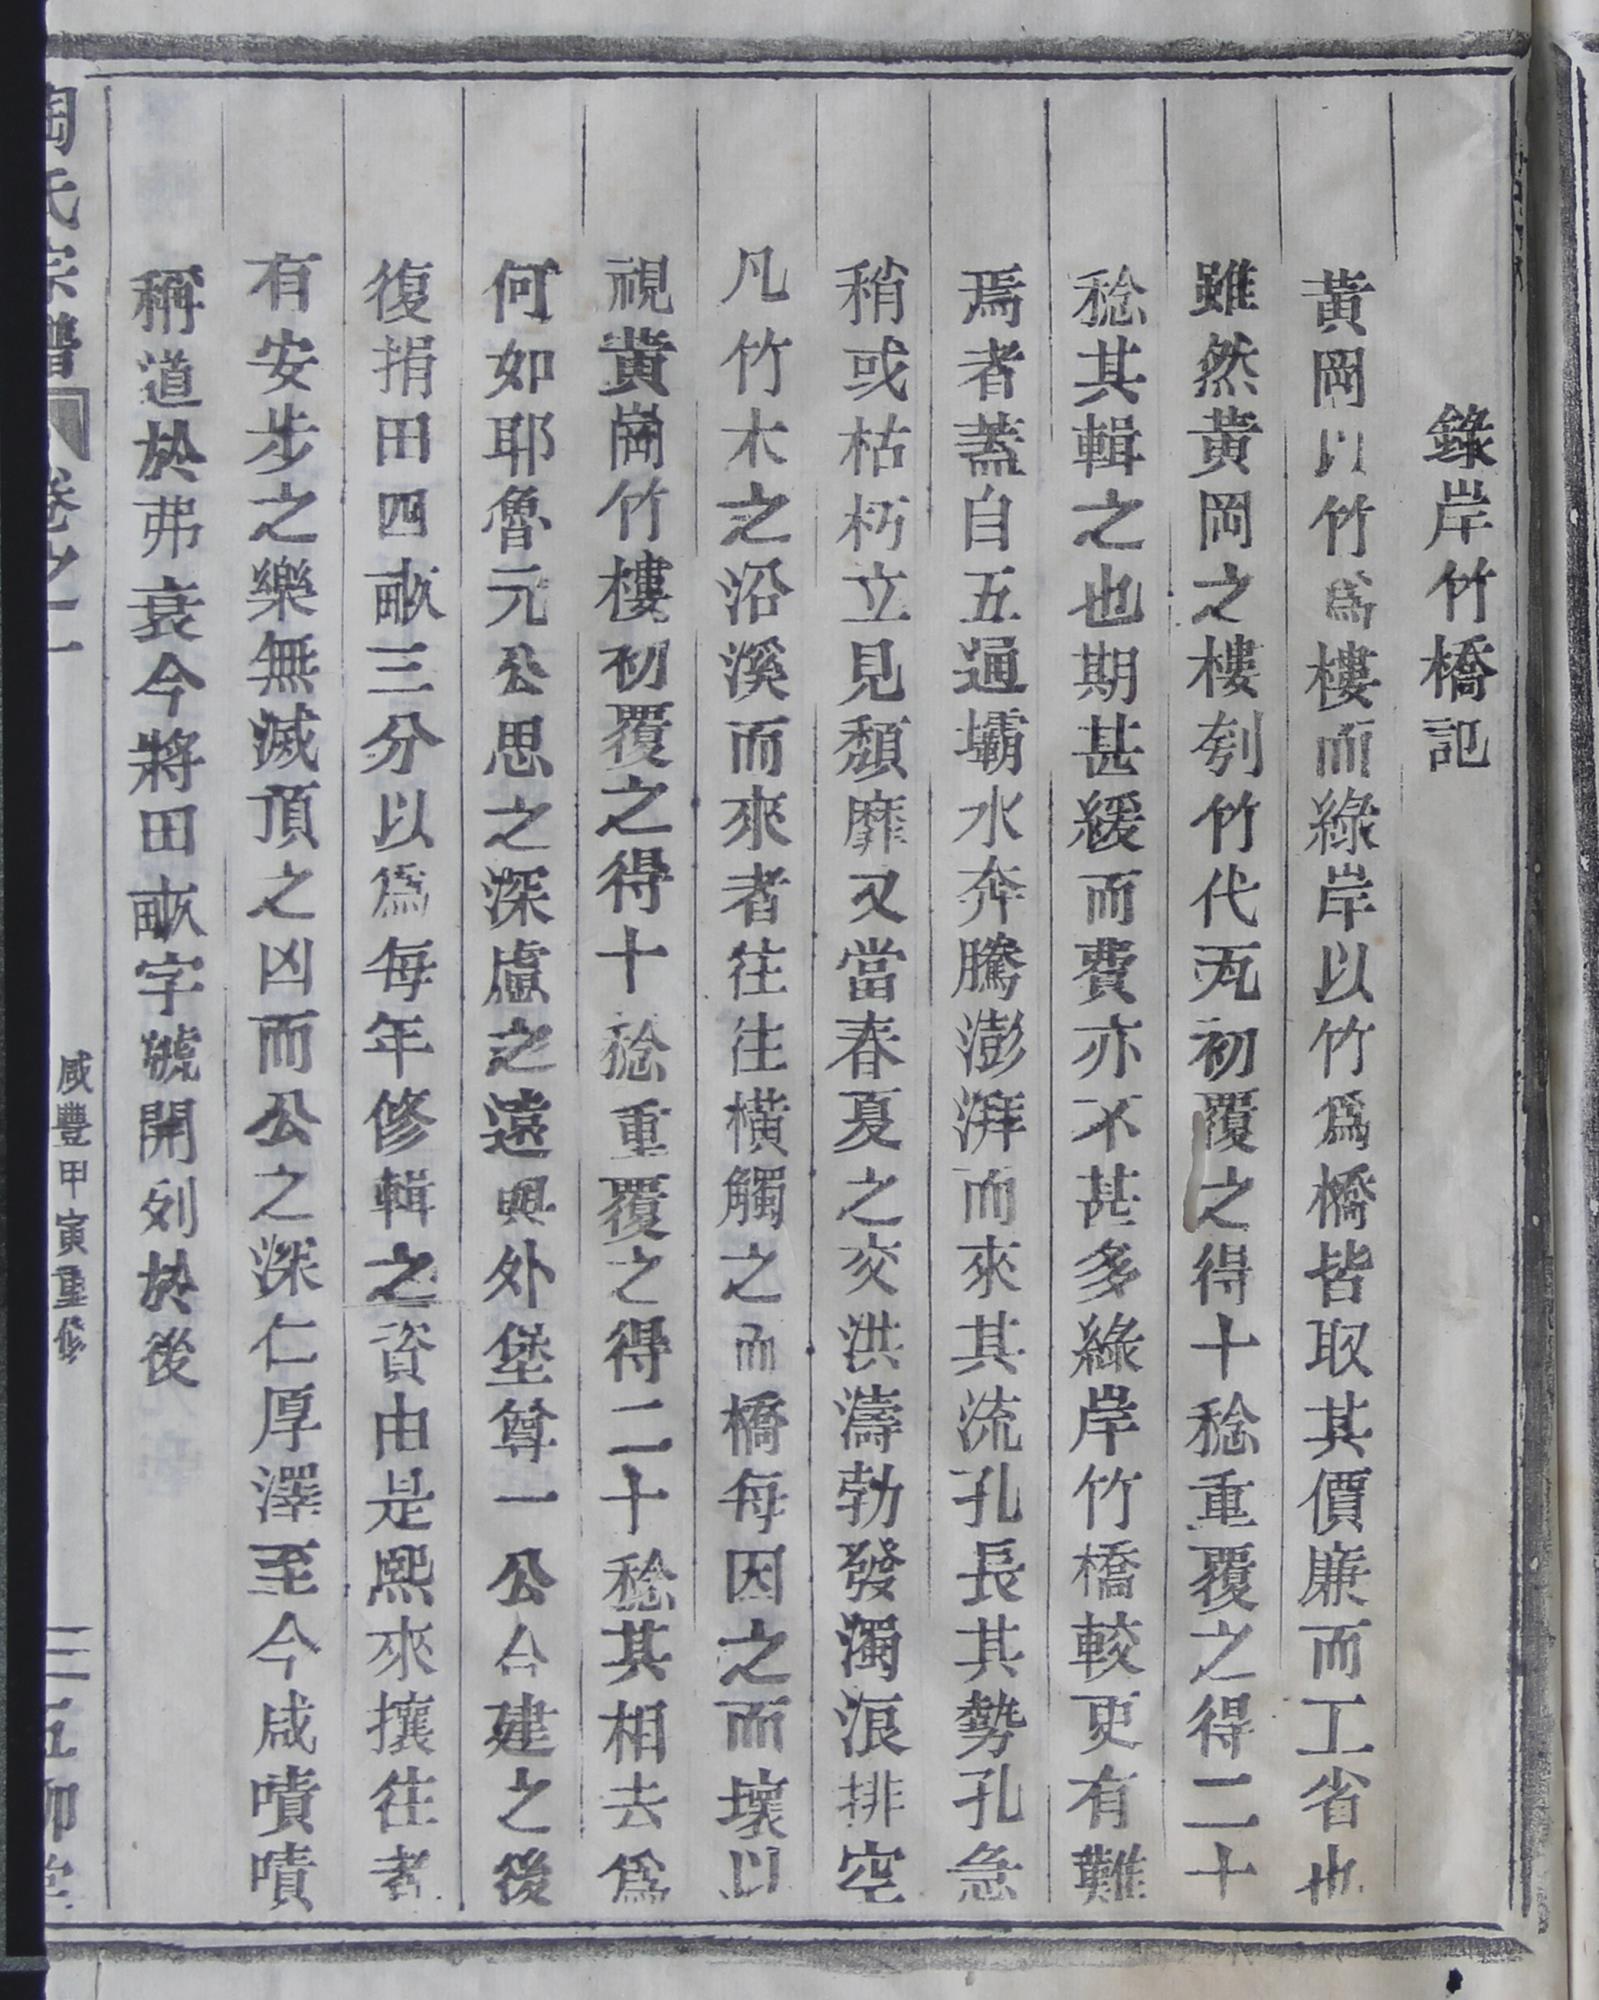 錄岸竹橋記
黃岡以竹爲樓而綠岸以竹爲橋皆取其價廉而工省也
雖然黃岡之樓刳竹代瓦初覆之得十稔重覆之得二十
稔其輯之也期甚緩而費亦不甚多綠岸竹橋較更有難
焉者蓋自五通壩水奔騰澎湃而來其流孔長其勢孔急
稍或枯朽立見頽靡又當春夏之交洪濤勃發濁浪排空
凡竹木之沿溪而來者往往橫觸之而橋每因之而壞以
視黃崗竹樓初覆之得十稔重覆之得二十稔其相去爲
何如耶魯元公思之深慮之遠與外堡尊一公合建之後
復捐田四畝三分以爲每年修輯之資由是熙來攘往者
有安步之樂無滅頂之凶而公之深仁厚澤至今咸嘖嘖
稱道於弗衰今將田畝字號開列於後
陶氏宗譜 卷之一 咸豐甲寅重修 三 五柳堂